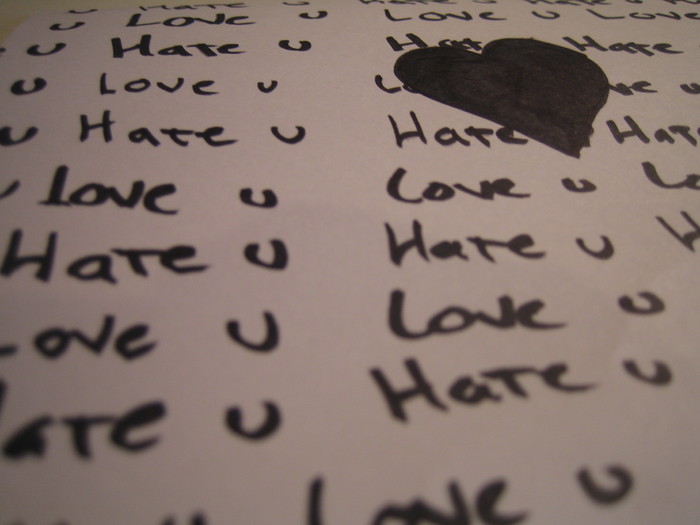 Hate u Hate u Hate u
u Love u Love u Love
u Hate u Hate Hate
u Love u
u Hate u Hate Hat
Love u Love u Lo
Hate u Hate u H
Love u Love u
Hate u Hate u
Love u